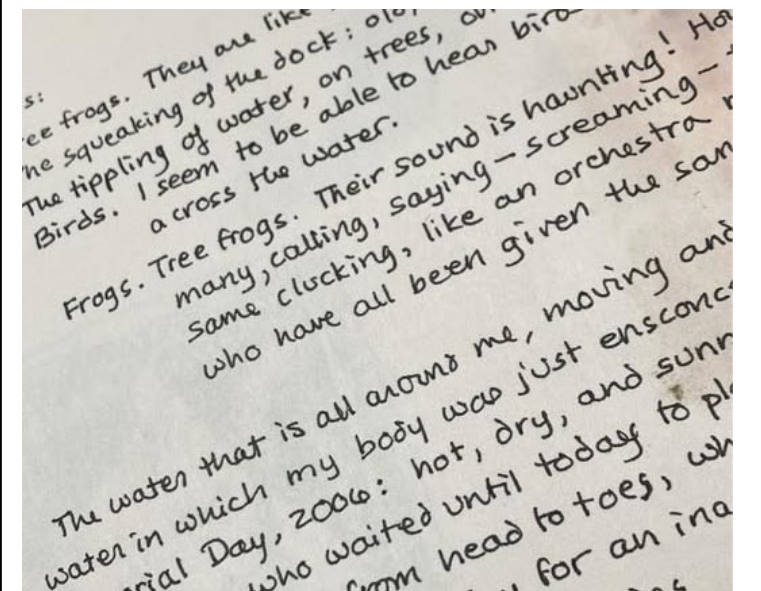 s:
ee frogs. They are like
he squeaking of the dock: old,
The tippling of water, on trees, on
Birds. I seem to be able to hear bird
across the water.
Frogs. Tree frogs. Their sound is haunting! Ho
many, calling, saying - screaming -
same clucking, like an orchestra
who have all been given the sam
The water that is all around me, moving and
water in which my body was just ensconc
rial Day, 2006: hot, dry, and sunn
who waited until today to pl
from head to toes, wh
for an ina